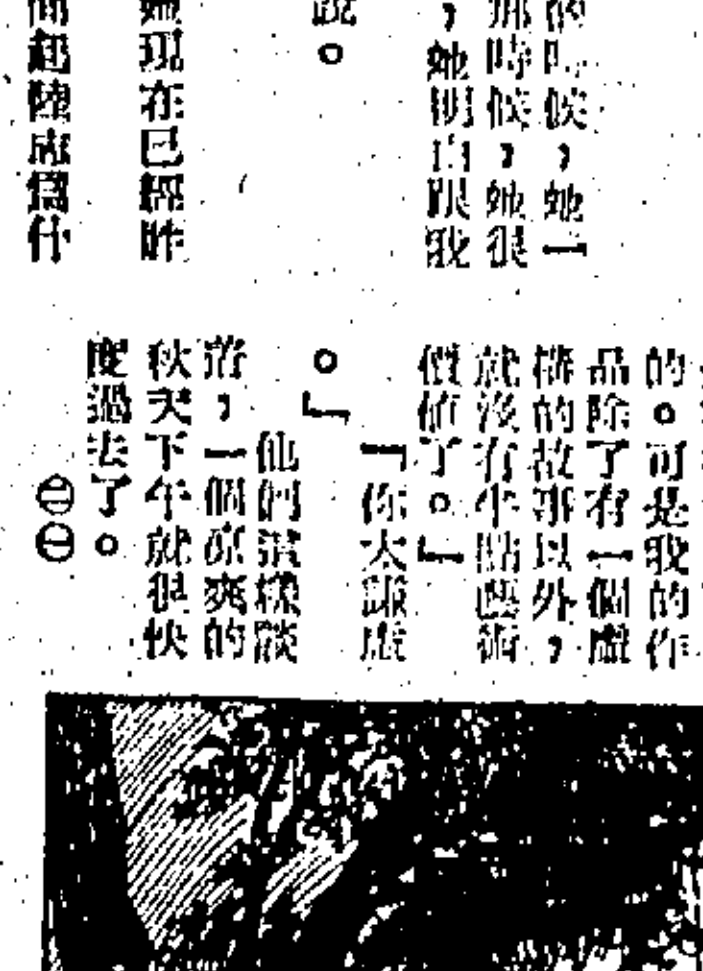 的時候，她一
那時候，她很
，她明白跟我
說。
她現在已經昨
問起陸志爲什
的。可是我的作
品除了有一個虛
構的故事以外，
就沒有半點藝術
價值了。』
『你太謙虛
。』
他們這樣談
着，一個凉爽的
秋天下午就很快
度過去了。
㊁㊀